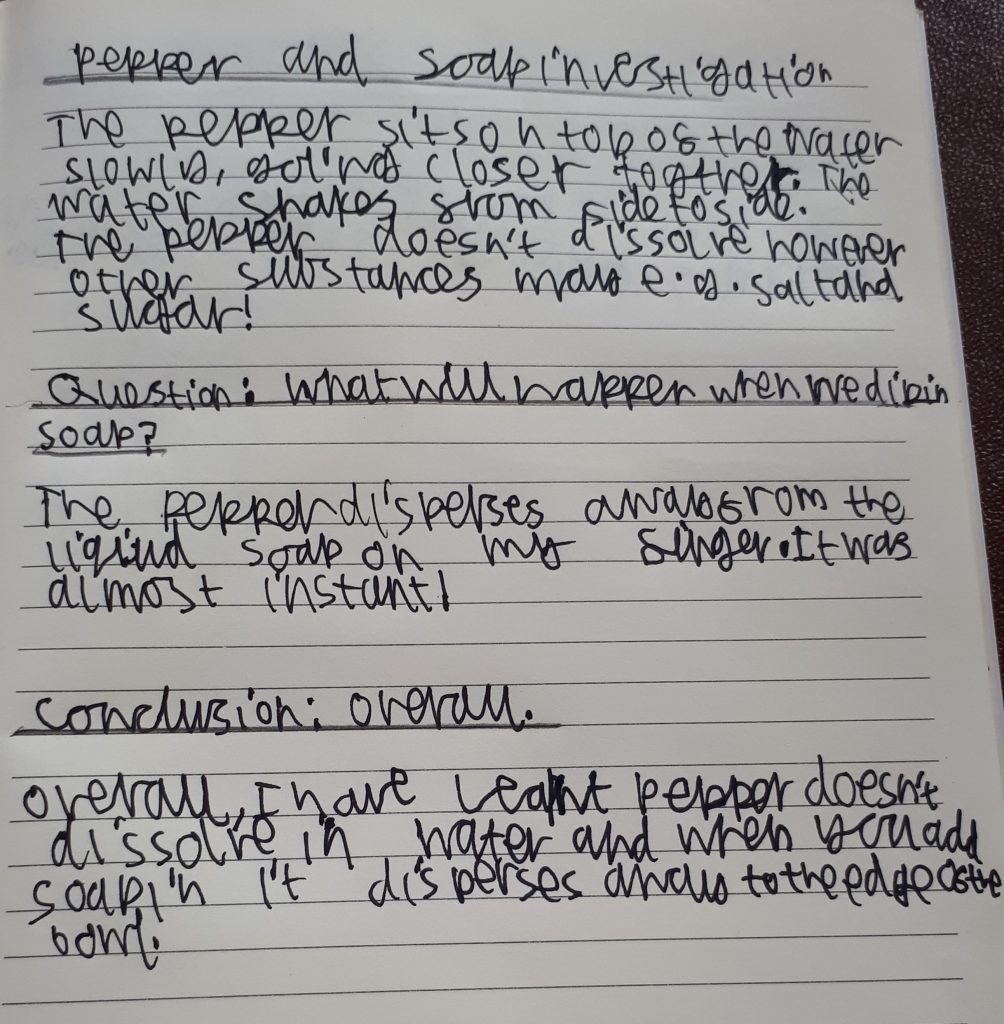 Pepper and soap investigation
The pepper sits on top of the water
slowly, going closer togther. The
water shakes from side to side.
The pepper doesn't dissolve however
other substances may e.g. salt and
sugar!
Question: what will happen when we dip in
soap?
The pepper disperses away from the
liquid soap on my finger. It was
almost instant!
Conclusion: overall.
Overall, I have learnt pepper doesn't
dissolve in water and when you add
soap in it disperses away to the edge of the
bowl.